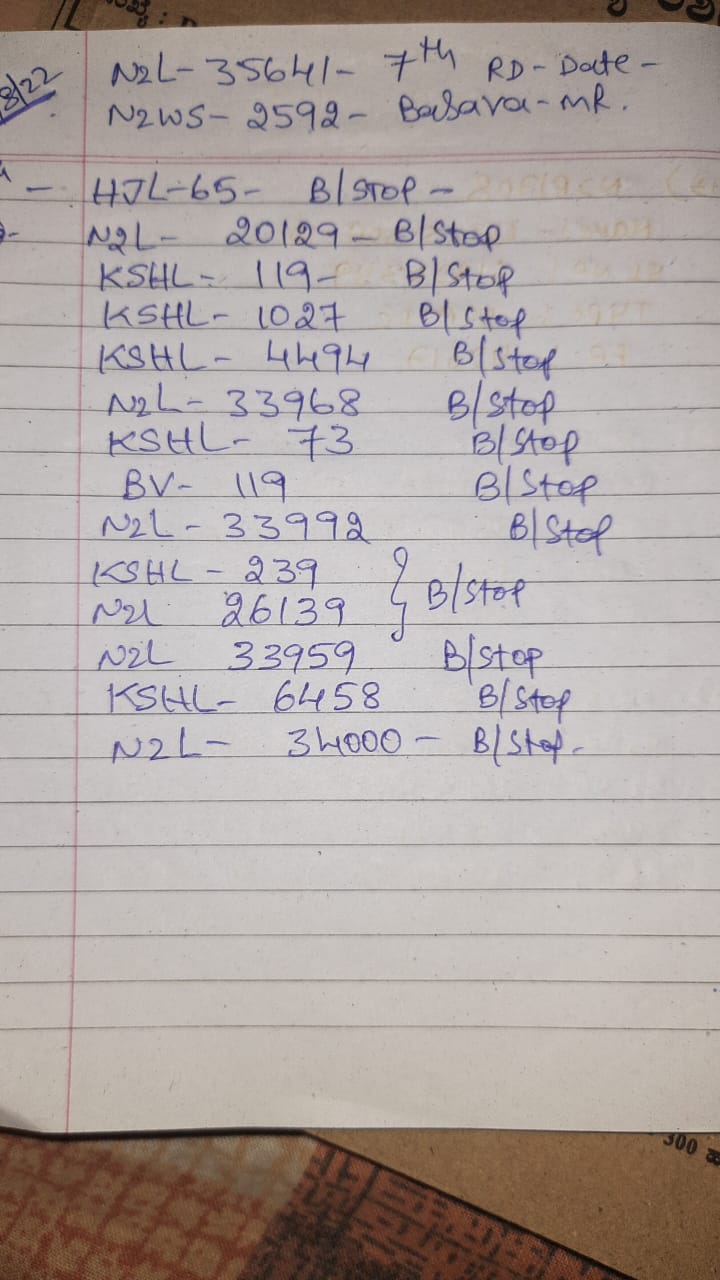 8/22
N2L- 35641- 7th RD- Date-
N2WS- 2592- Basava- MR.
- HJL-65- B/STOP -
N2L- 20129- B/Stop
KSHL- 119- B/Stop
KSHL- 1027 B/Stop
KSHL- 4494 B/Stop
N2L- 33968 B/Stop
KSHL- 73 B/Stop
BV- 119 B/Stop
N2L- 33992 B/Stop
KSHL- 239 } B/Stop
N2L 26139
N2L 33959 B/Stop
KSHL- 6458 B/Stop
N2L- 34000- B/Stop.
300